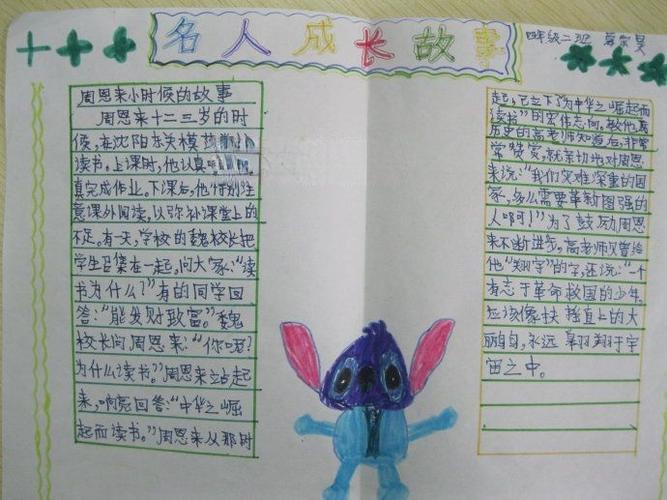 名人成长故事
四年级二班
周恩来小时候的故事
周恩来十二三岁的时
候,在沈阳东关模范
读书。上课时,他认真
真完成作业。下课后,他特别注
意课外阅读,以弥补课堂上的
不足。有一天,学校的魏校长把
学生召集在一起,问大家:“读
书为什么?”有的同学回
答:“能发财致富。”魏
校长问周恩来:“你呢?
为什么读书。”周恩来站起
来,响亮回答:“中华之崛
起而读书。”周恩来从那时
起,已立下了为中华之崛起而
读书”的宏伟志向。教他
历史的高老师知道后,非常
常赞赏,就亲切地对周恩
来说:“我们灾难深重的国
家,多么需要革新图强的
人啊!”为了鼓励周恩
来不断进步,高老师贝曾给
他“翔宇”的字,还说:“一个
有志于革命救国的少年,
应该像快 摇直上的大
丽鸟,永远 翱翔于宇
宙之中。